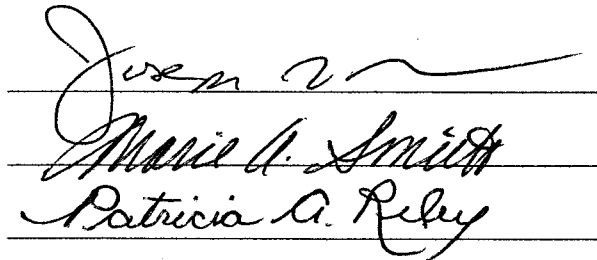 Joseph
Marie A. Smith
Patricia A. Riley